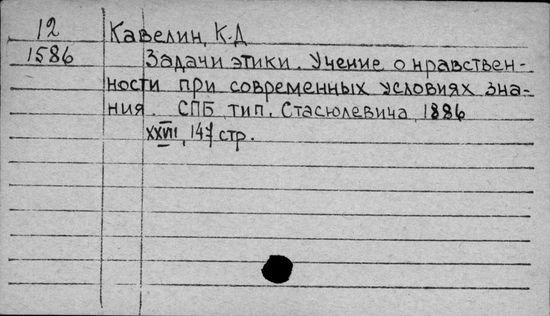 12 Кавелин, К.Д
1586 Задачи этики. Учение о нравствен-
ности при современных условиях зна-
ния. СПБ, тип. Стасюлевича, 1886
XXVIII, 147 стр.